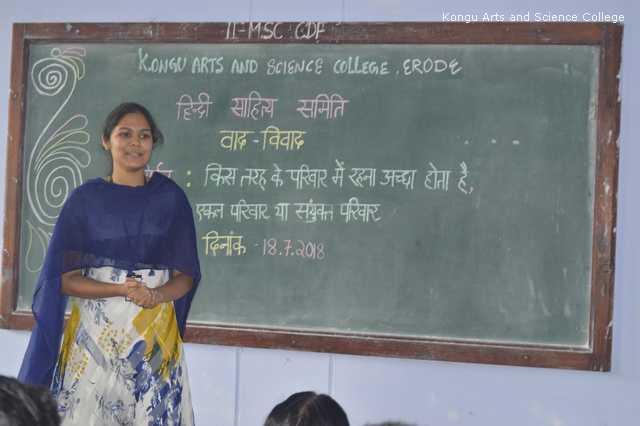 Kongu Arts and Science College
II-MSC CDF
KONGU ARTS AND SCIENCE COLLEGE, ERODE
हिन्दी साहित्य समिति
वाद-विवाद
: किस तरह के परिवार में रहना अच्छा होता है,
एकल परिवार या संयुक्त परिवार
दिनांक 18.7.2018